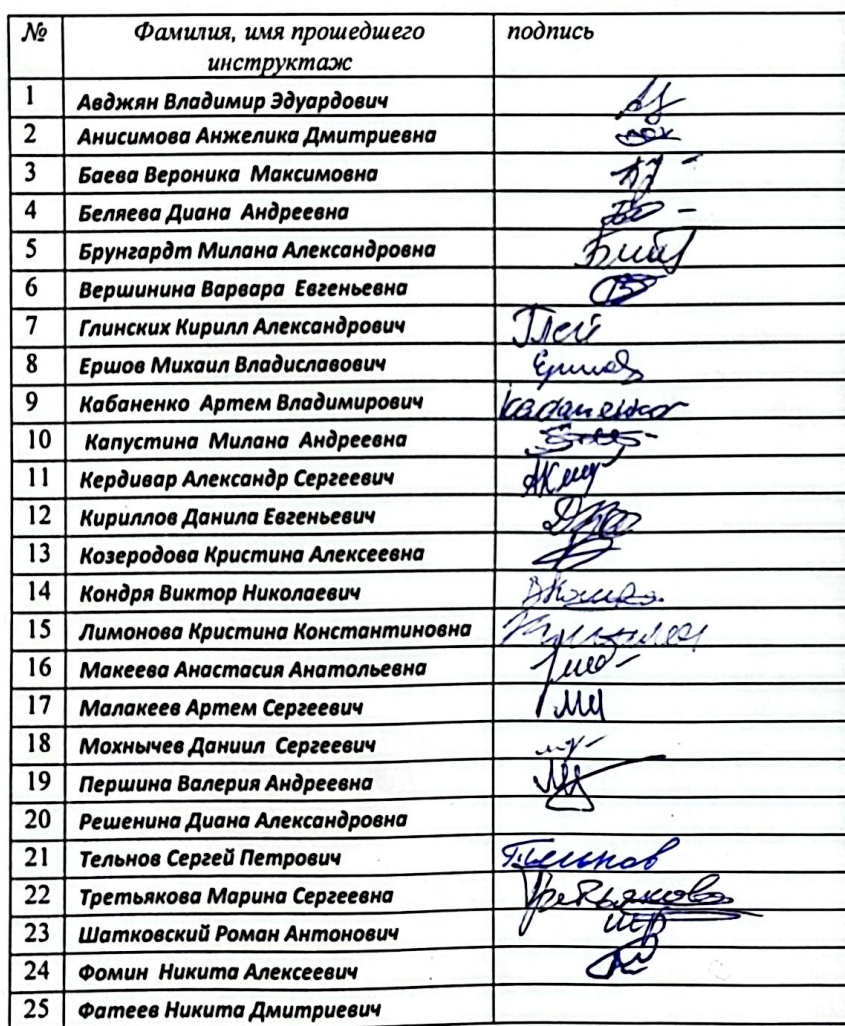 № Фамилия, имя прошедшего подпись
инструктаж
1 Авджян Владимир Эдуардович
2 Анисимова Анжелика Дмитриевна
3 Баева Вероника Максимовна
4 Беляева Диана Андреевна
5 Брунгардт Милана Александровна
6 Вершинина Варвара Евгеньевна
7 Глинских Кирилл Александрович
8 Ершов Михаил Владиславович Ершов
9 Кабаненко Артем Владимирович Кабаненко
10 Капустина Милана Андреевна
11 Кердивар Александр Сергеевич
12 Кириллов Данила Евгеньевич
13 Козеродова Кристина Алексеевна
14 Кондря Виктор Николаевич
15 Лимонова Кристина Константиновна
16 Макеева Анастасия Анатольевна
17 Малакеев Артем Сергеевич
18 Мохнычев Даниил Сергеевич
19 Першина Валерия Андреевна
20 Решенина Диана Александровна
21 Тельнов Сергей Петрович Тельнов
22 Третьякова Марина Сергеевна Третьякова
23 Шатковский Роман Антонович
24 Фомин Никита Алексеевич
25 Фатеев Никита Дмитриевич